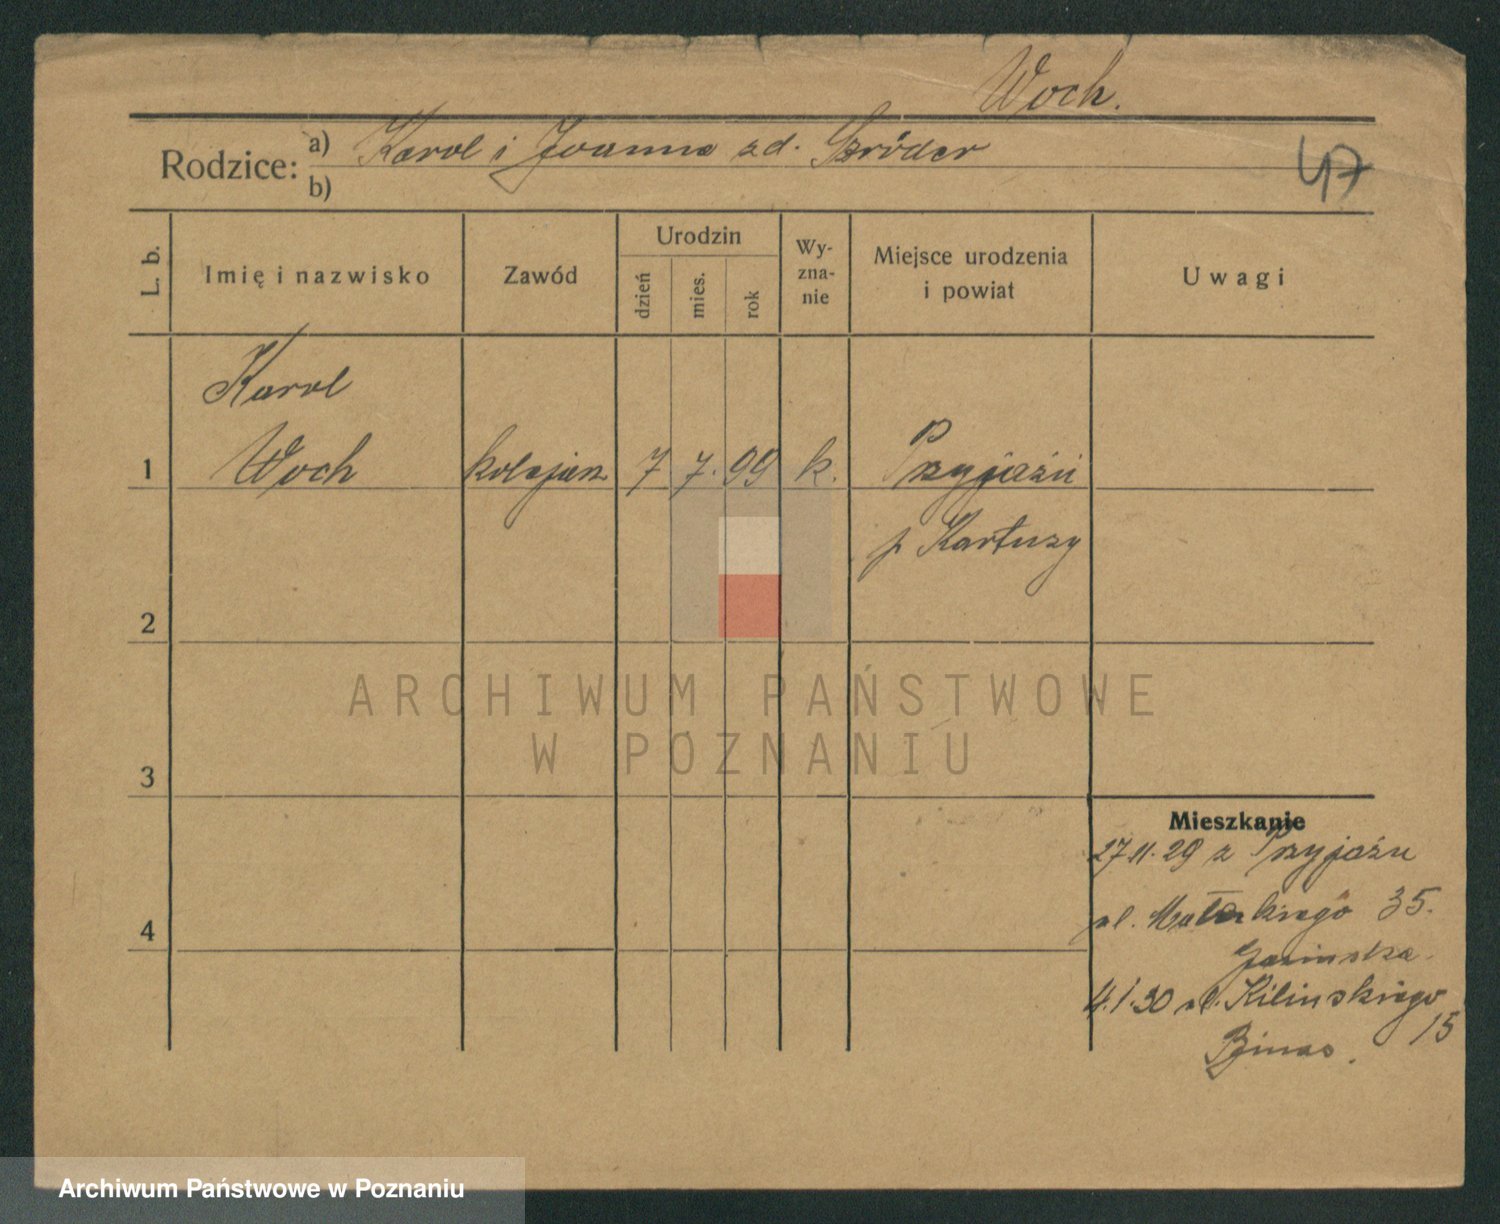 Woch.
Rodzice: a) Karol i Joanna zd. Szróder
b)
47
L. b.
Imię i nazwisko
Zawód
Urodzin
dzień
mies.
rok
Wy-
zna-
nie
Miejsce urodzenia
i powiat
Uwagi
Karol
1 Woch kolejarz 7 7. 99 k. Przyjaźń
p Kartuzy
2
3
4
Mieszkanie
27.11.29 z Przyjaźn
ul. 35.
4.1.30 ul. Kilinskiego
15
Binas.
ARCHIWUM PAŃSTWOWE
W POZNANIU
Archiwum Państwowe w Poznaniu